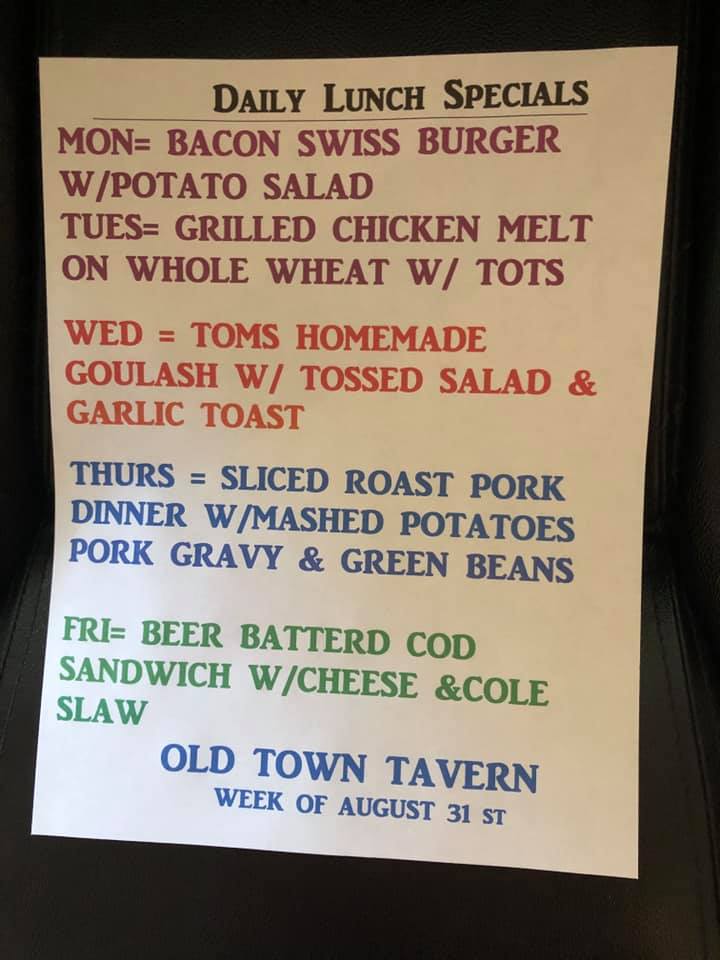 DAILY LUNCH SPECIALS
MON= BACON SWISS BURGER
W/POTATO SALAD
TUES= GRILLED CHICKEN MELT
ON WHOLE WHEAT W/ TOTS
WED = TOMS HOMEMADE
GOULASH W/ TOSSED SALAD &
GARLIC TOAST
THURS = SLICED ROAST PORK
DINNER W/MASHED POTATOES
PORK GRAVY & GREEN BEANS
FRI= BEER BATTERD COD
SANDWICH W/CHEESE &COLE
SLAW
OLD TOWN TAVERN
WEEK OF AUGUST 31 ST